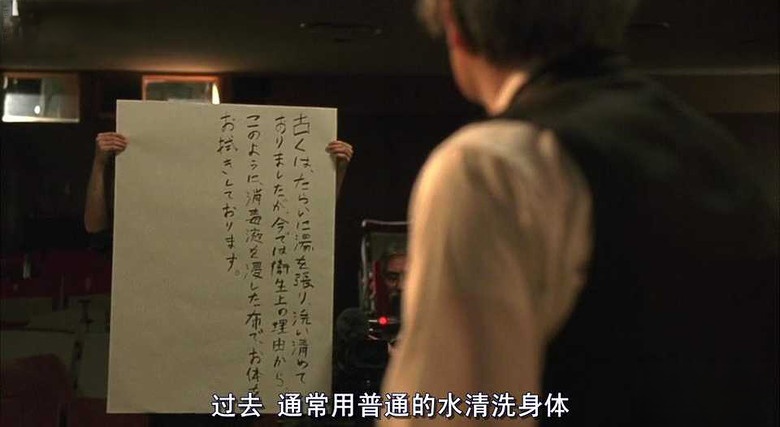 古くは、たらいに湯を張り、洗い清めて
ありましたが、今では衛生上の理由から、
このように、消毒液を浸した布で、お体を
お拭きしております。
过去 通常用普通的水清洗身体